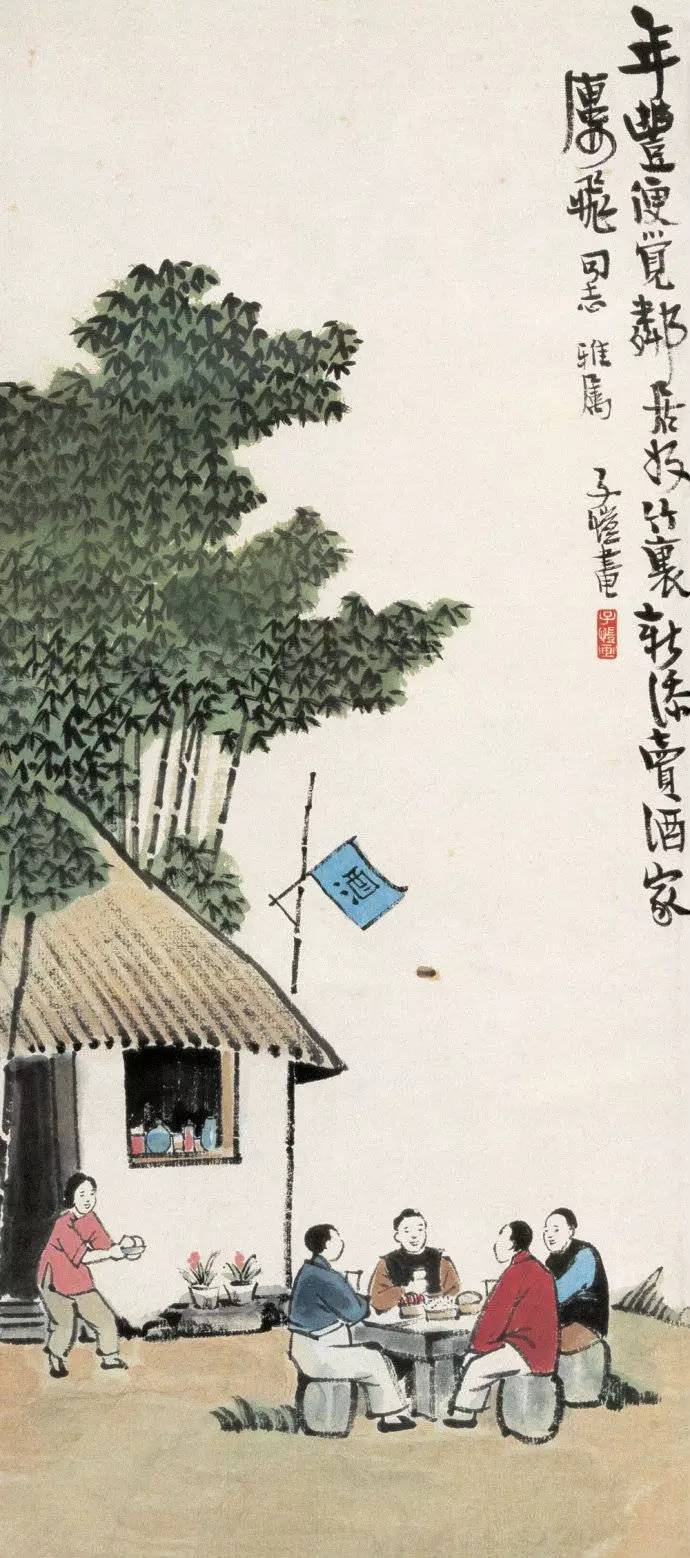 年豐便覺鄰居好竹裏新添賣酒家
飛同志雅属
子愷畫
子愷画
酒